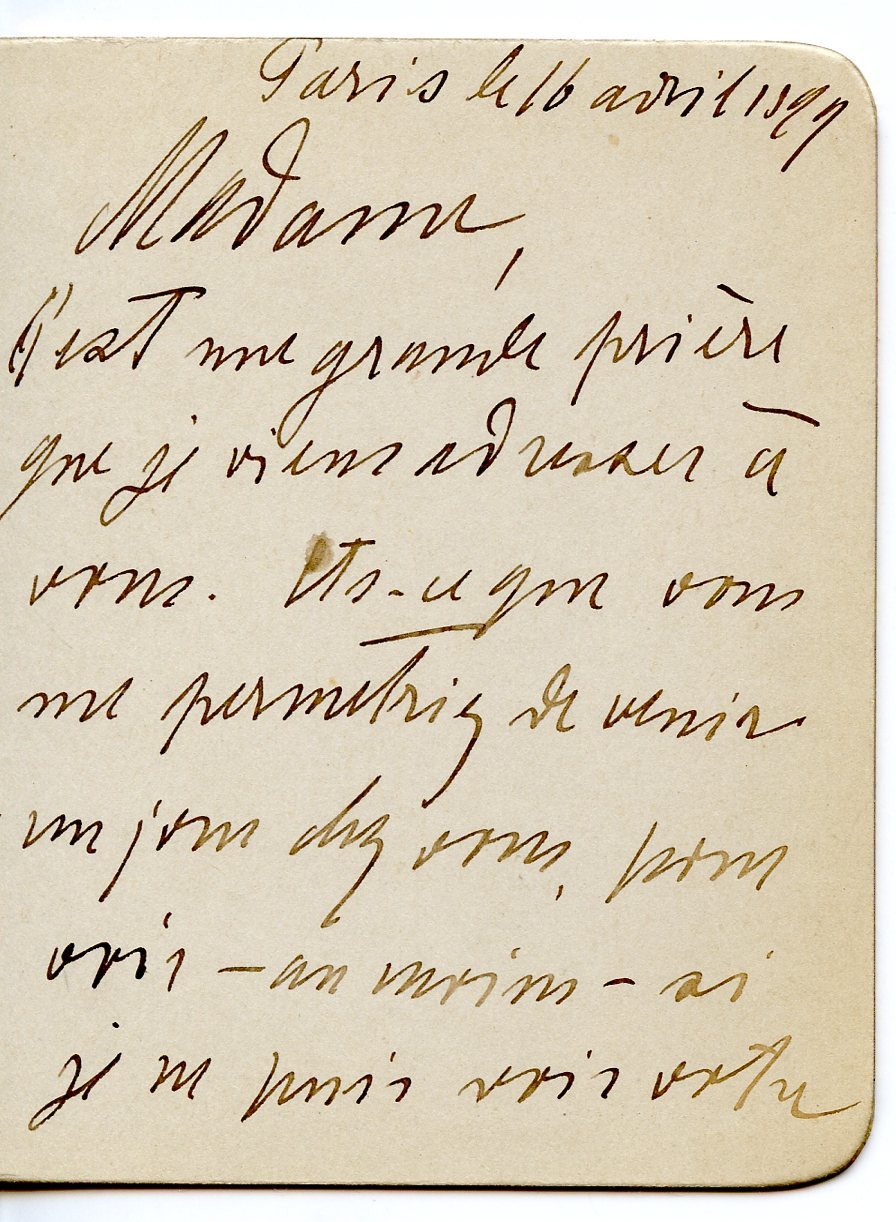 Paris le 16 avril 1899
Madame,
C'est une grande prière
que je viens adresser à
vous. Ets-ce que vous
me permetriez de venir
un jour chez vous, pour
voir - au moins - si
je ne puis voir votre